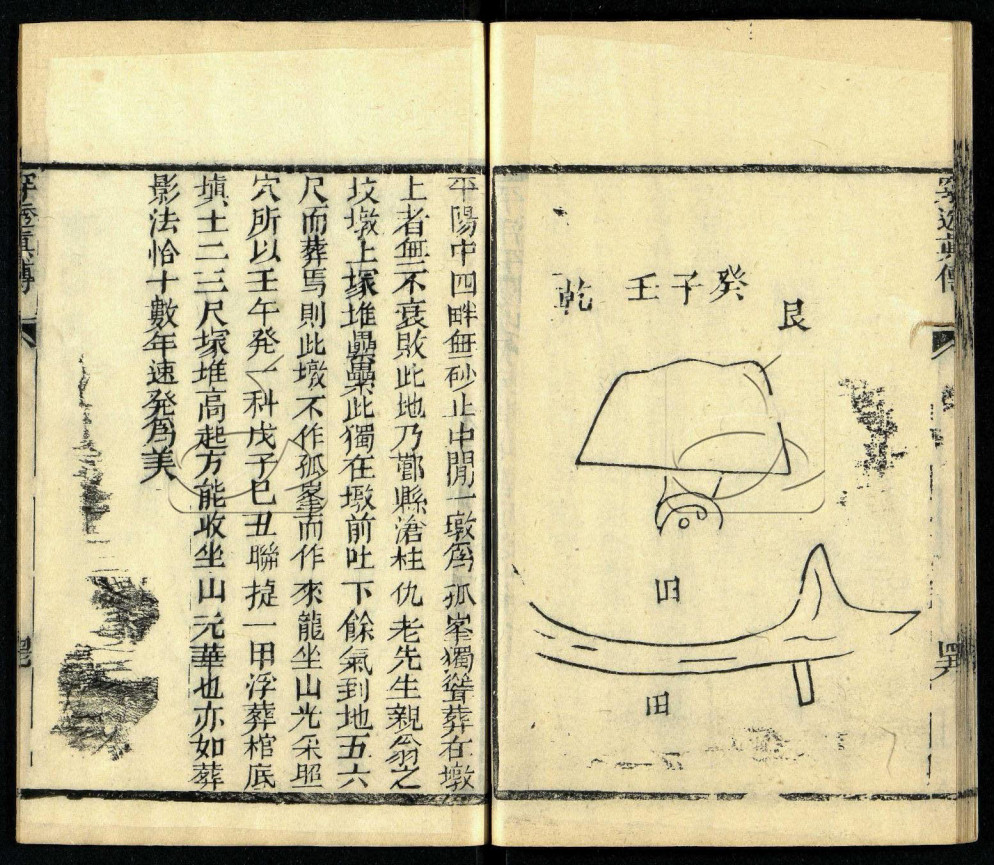 乾 壬子癸 艮
田
田
平陽中四畔無砂止中閒一墩為孤峯獨聳葬在墩
上者無不衰敗此地乃鄞縣滄柱仇老先生親翁之
坟墩上塚堆纍纍此獨在墩前吐下餘氣到地五六
尺而葬焉則此墩不作孤峯而作來龍坐山光采照
穴所以壬午發一科戊子巳丑聯捷一甲浮葬棺底
塡土二三尺塚堆高起方能收坐山元華也亦如葬
影法恰十數年速發為美